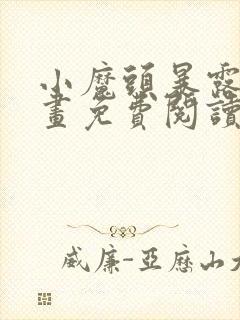 小魔頭暴露
畫免費閱讀
威廉-亞歷山大